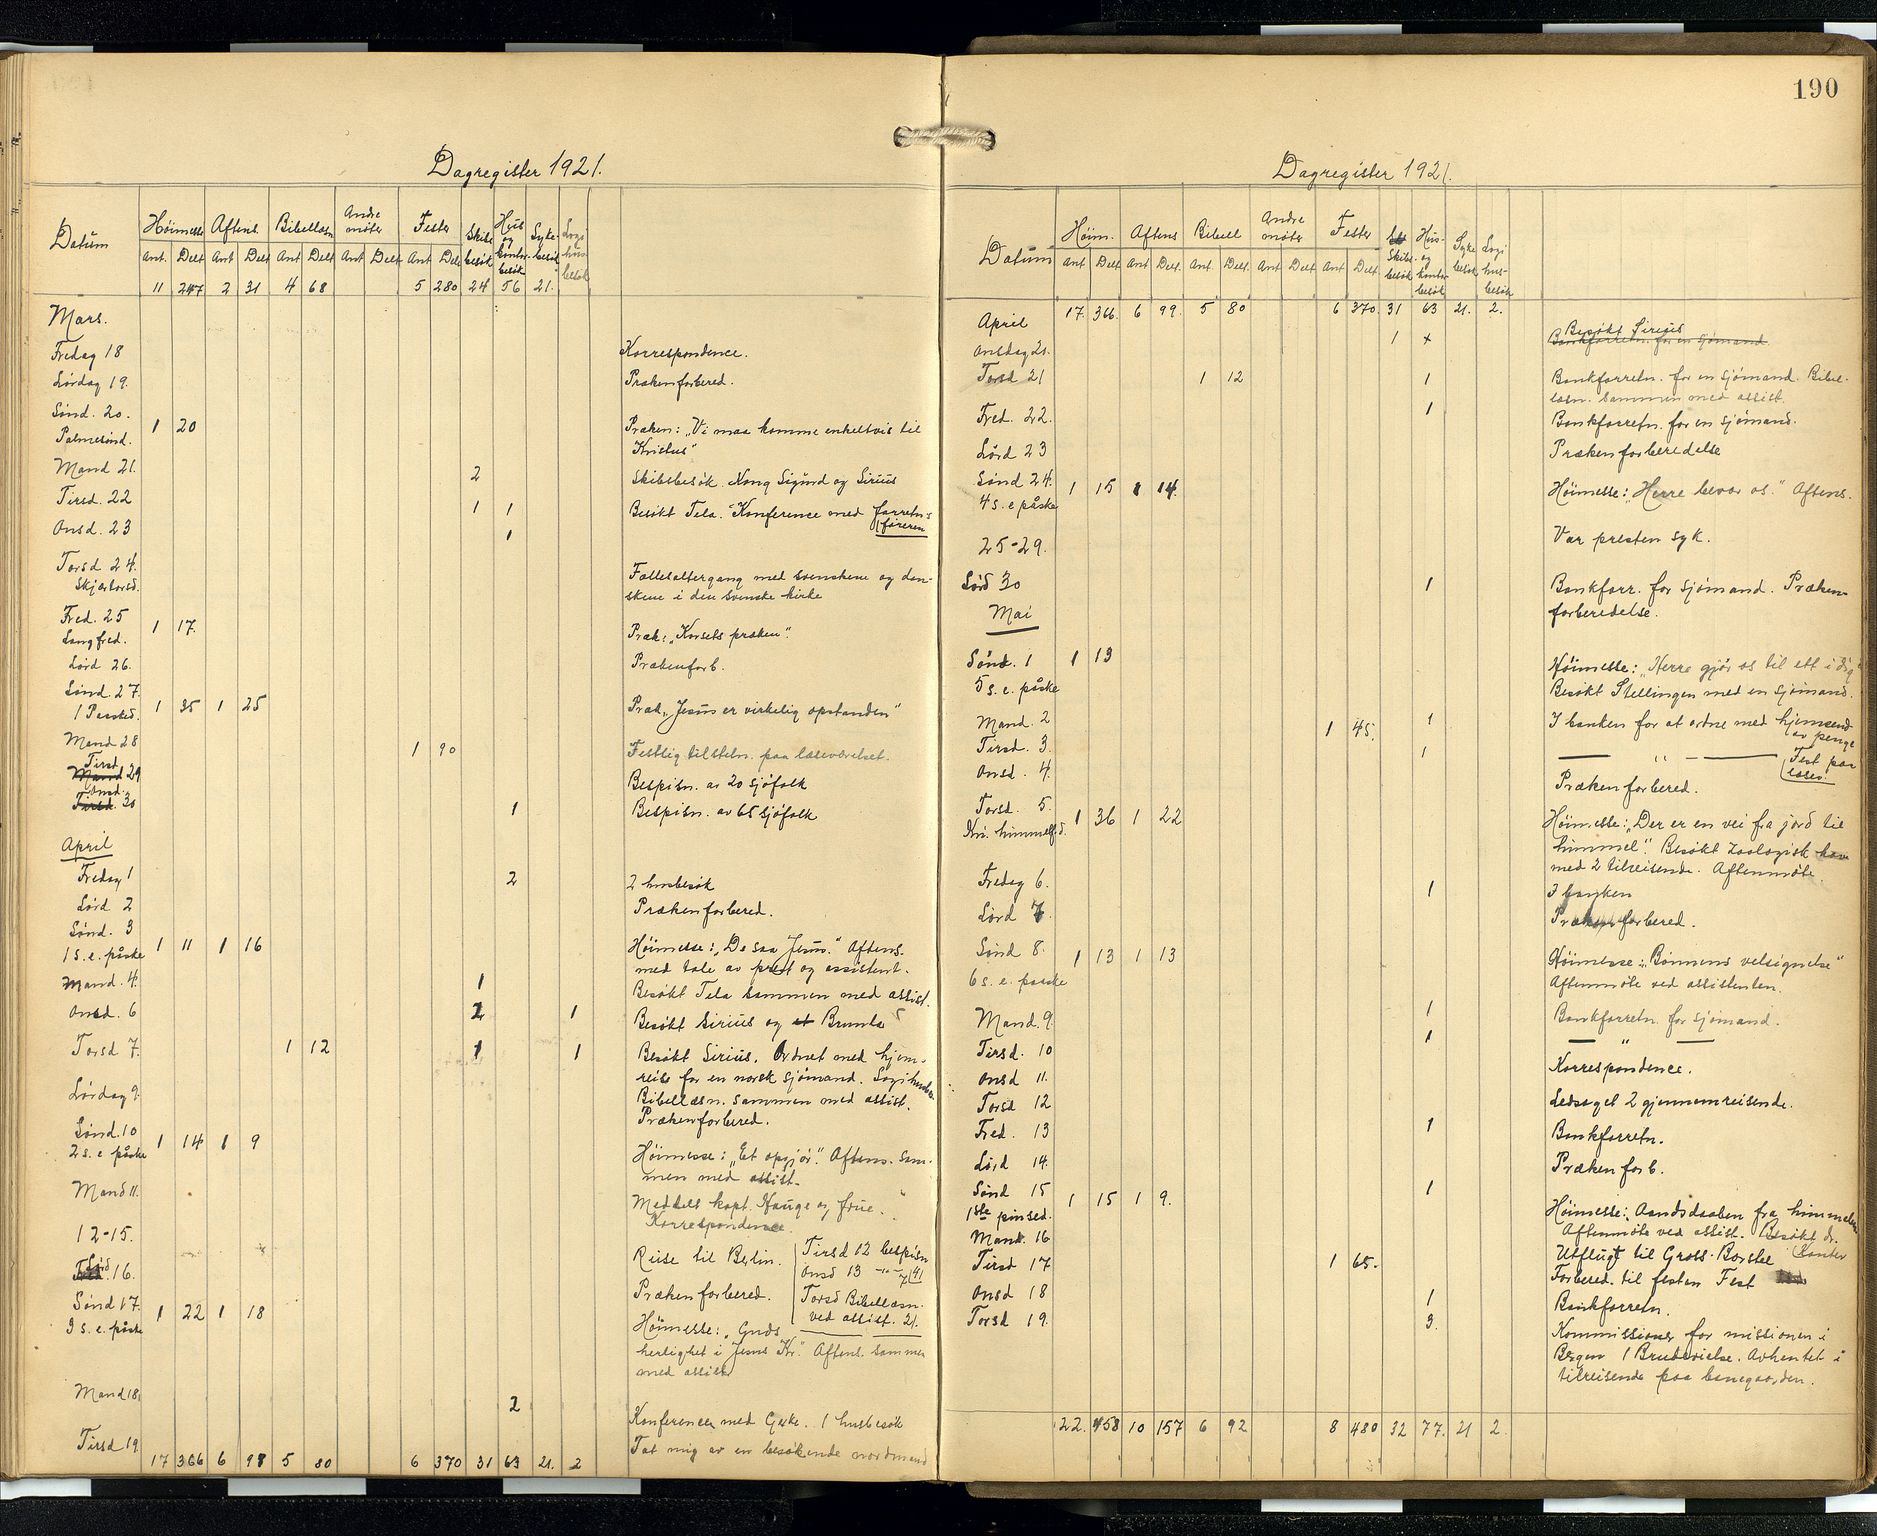 190
Dagregister 1921.
Datum Höimesse Aftens Bibellæsn Andre möter Fester Skibs besök Hus og kontor besök Syke- besök Logi hus besök
Ant. Delt Ant Delt Ant Delt Ant Delt Ant Delt
11 247 2 31 4 68 5 280 24 56 21.
Mars.
Fredag 18 Korrespondence.
Lördag 19. Prækenforbered.
Sönd. 20.
Palmesönd. 1 20 Præken: „Vi maa komme enkeltvis til
Kristus"
Mand 21. 2 Skibsbesök. Kong Sigurd og Sirius
Tirsd. 22 1 1 Besökt Tela. Konference med forretn-
föreren
Onsd. 23 1
Torsd 24.
Skjærtorsd. Fællesaltergang med svenskene og dan-
skene i den svenske kirke
Fred. 25
Langfred. 1 17. Præk: „Korsets præken".
Lörd 26. Prækenforb.
Sönd 27.
1 Paasked. 1 35 1 25 Præk „Jesus er virkelig opstanden"
Mand 28 1 90 Festlig tilsteln. paa læseværelset.
Tirsd
Mand 29 Bespisn. av 20 sjöfolk
Onsd.
Tirsd. 30 1 Bespisn. av 65 sjöfolk
April
Fredag 1 2 2 husbesök
Lörd 2 Prækenforbered.
Sönd. 3
1 s. e. påske 1 11 1 16 Höimesse: „De saa Jesus." Aftens.
med tale av prest og assistent.
Mand. 4. 1 Besökt Tela sammen med assist.
Onsd. 6 2 1 Besökt Sirius og et Brumla
Torsd 7. 1 12 1 1 Besökt Sirius. Ordnet med hjem-
reise for en norsk sjömand. Logihusbes.
Bibellæsn. sammen med assist.
Lördag 9. Prækenforbered.
Sönd. 10
2 s. e påske 1 14 1 9 Höimesse: „Et opgjör". Aftens. sam-
men med assist.
Mand 11. Meddels kapt. Hauge og frue.
Korrespondence
12-15. Reise til Berlin. Tirsd 12 bespisn
Onsd 13 -"- 41
Lörd
Fred. 16. Prækenforbered. Torsd Bibellæsn.
ved assist. 21.
Sönd 17.
3 s. e. påske 1 22 1 18 Höimesse: „Guds
herlighet i Jesus Kr." Aftens. sammen
med assist
Mand 18. 2 Konference med Gerke. 1 husbesök
Tirsd 19. Tat mig av en besökende nordmand
17 366 6 98 5 80 6 370 31 63 21. 2
Dagregister 1921.
Datum Höim. Aftens Bibell Andre möter Fester Skibs. besök Hus- og kontor besök Syke besök Logi hus- besök
Ant Delt. Ant Delt. Ant. Delt. Ant Delt Ant Delt.
April 17. 366. 6 99. 5 80 6 370. 31 63 21. 2.
Onsdag 20. 1 + Besökt Sirius
Bankforretn. for en sjömand.
Torsd 21 1 12 1 Bankforretn. for en sjömand. Bibel-
læsn. sammen med assist.
Fred. 22. 1 Bankforretn. for en sjömand.
Lörd 23 Prækenforberedelse
Sönd 24.
4 s. e påske 1 15 1 14. Höimesse: „Herre bevar os." Aftens.
25-29. Var presten syk.
Lörd 30 1 Bankforr. for sjömand. Præken-
forberedelse.
Mai
Sönd. 1 1 13 Höimesse: „Herre gjör os til ett i dig"
5 s. e. påske Besökt Stellingen med en sjömand.
Mand. 2 1 45. 1 I banken for at ordne med hjemsend
av penge
Tirsd. 3. 1 — " — Fest paa
læsev.
Onsd. 4. Prækenforbered.
Torsd. 5.
Kri. himmelf.d. 1 36 1 22 Höimesse: „Der er en vei fra jord til
himmel". Besökt zoologisk have
med 2 tilreisende. Aftenmöte.
Fredag 6. 1 I banken
Lörd 7. Prækenforbered.
Sönd 8.
6 s. e. paaske 1 13 1 13 Höimesse: „Bönnens velsignelse"
Aftenmöte ved assistenten.
Mand. 9. 1 Bankforretn. for sjömand.
Tirsd. 10 1 — " —
Onsd 11. Korrespondence.
Torsd 12 Ledsaget 2 gjennemreisende.
Fred. 13 1 Bankforretn.
Lörd 14. Prækenforb.
Sönd 15
1ste pinsed. 1 15 1 9. 1 Höimesse: „Aandsdaaben fra himmelen
Aftenmöte ved assist. Besökt dr.
Kanter
Mand. 16 Utflugt til Gross-Borstel
Tirsd 17 1 65. Forbered. til festen Fest
Onsd 18 1 Bankforretn.
Torsd 19. 3. Kommissioner for missionen i
Bergen 1 Brudevielse. Avhentet i
tilreisende paa banegaarden.
22. 458 10 157 6 92 8 480 32 77. 21 2.